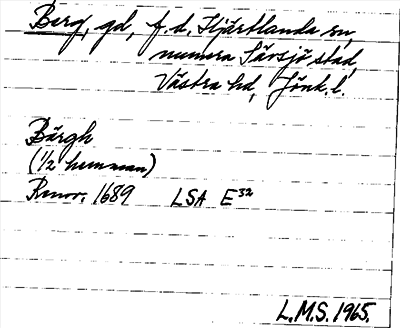 Berg, gd, f.d. Hjärtlanda sn,
numera Sävsjö stad,
Västra hd, Jönk. l.
Bärgh
(1/2 hemman)
Renov. 1689 LSA E³²
L.M.S. 1965.